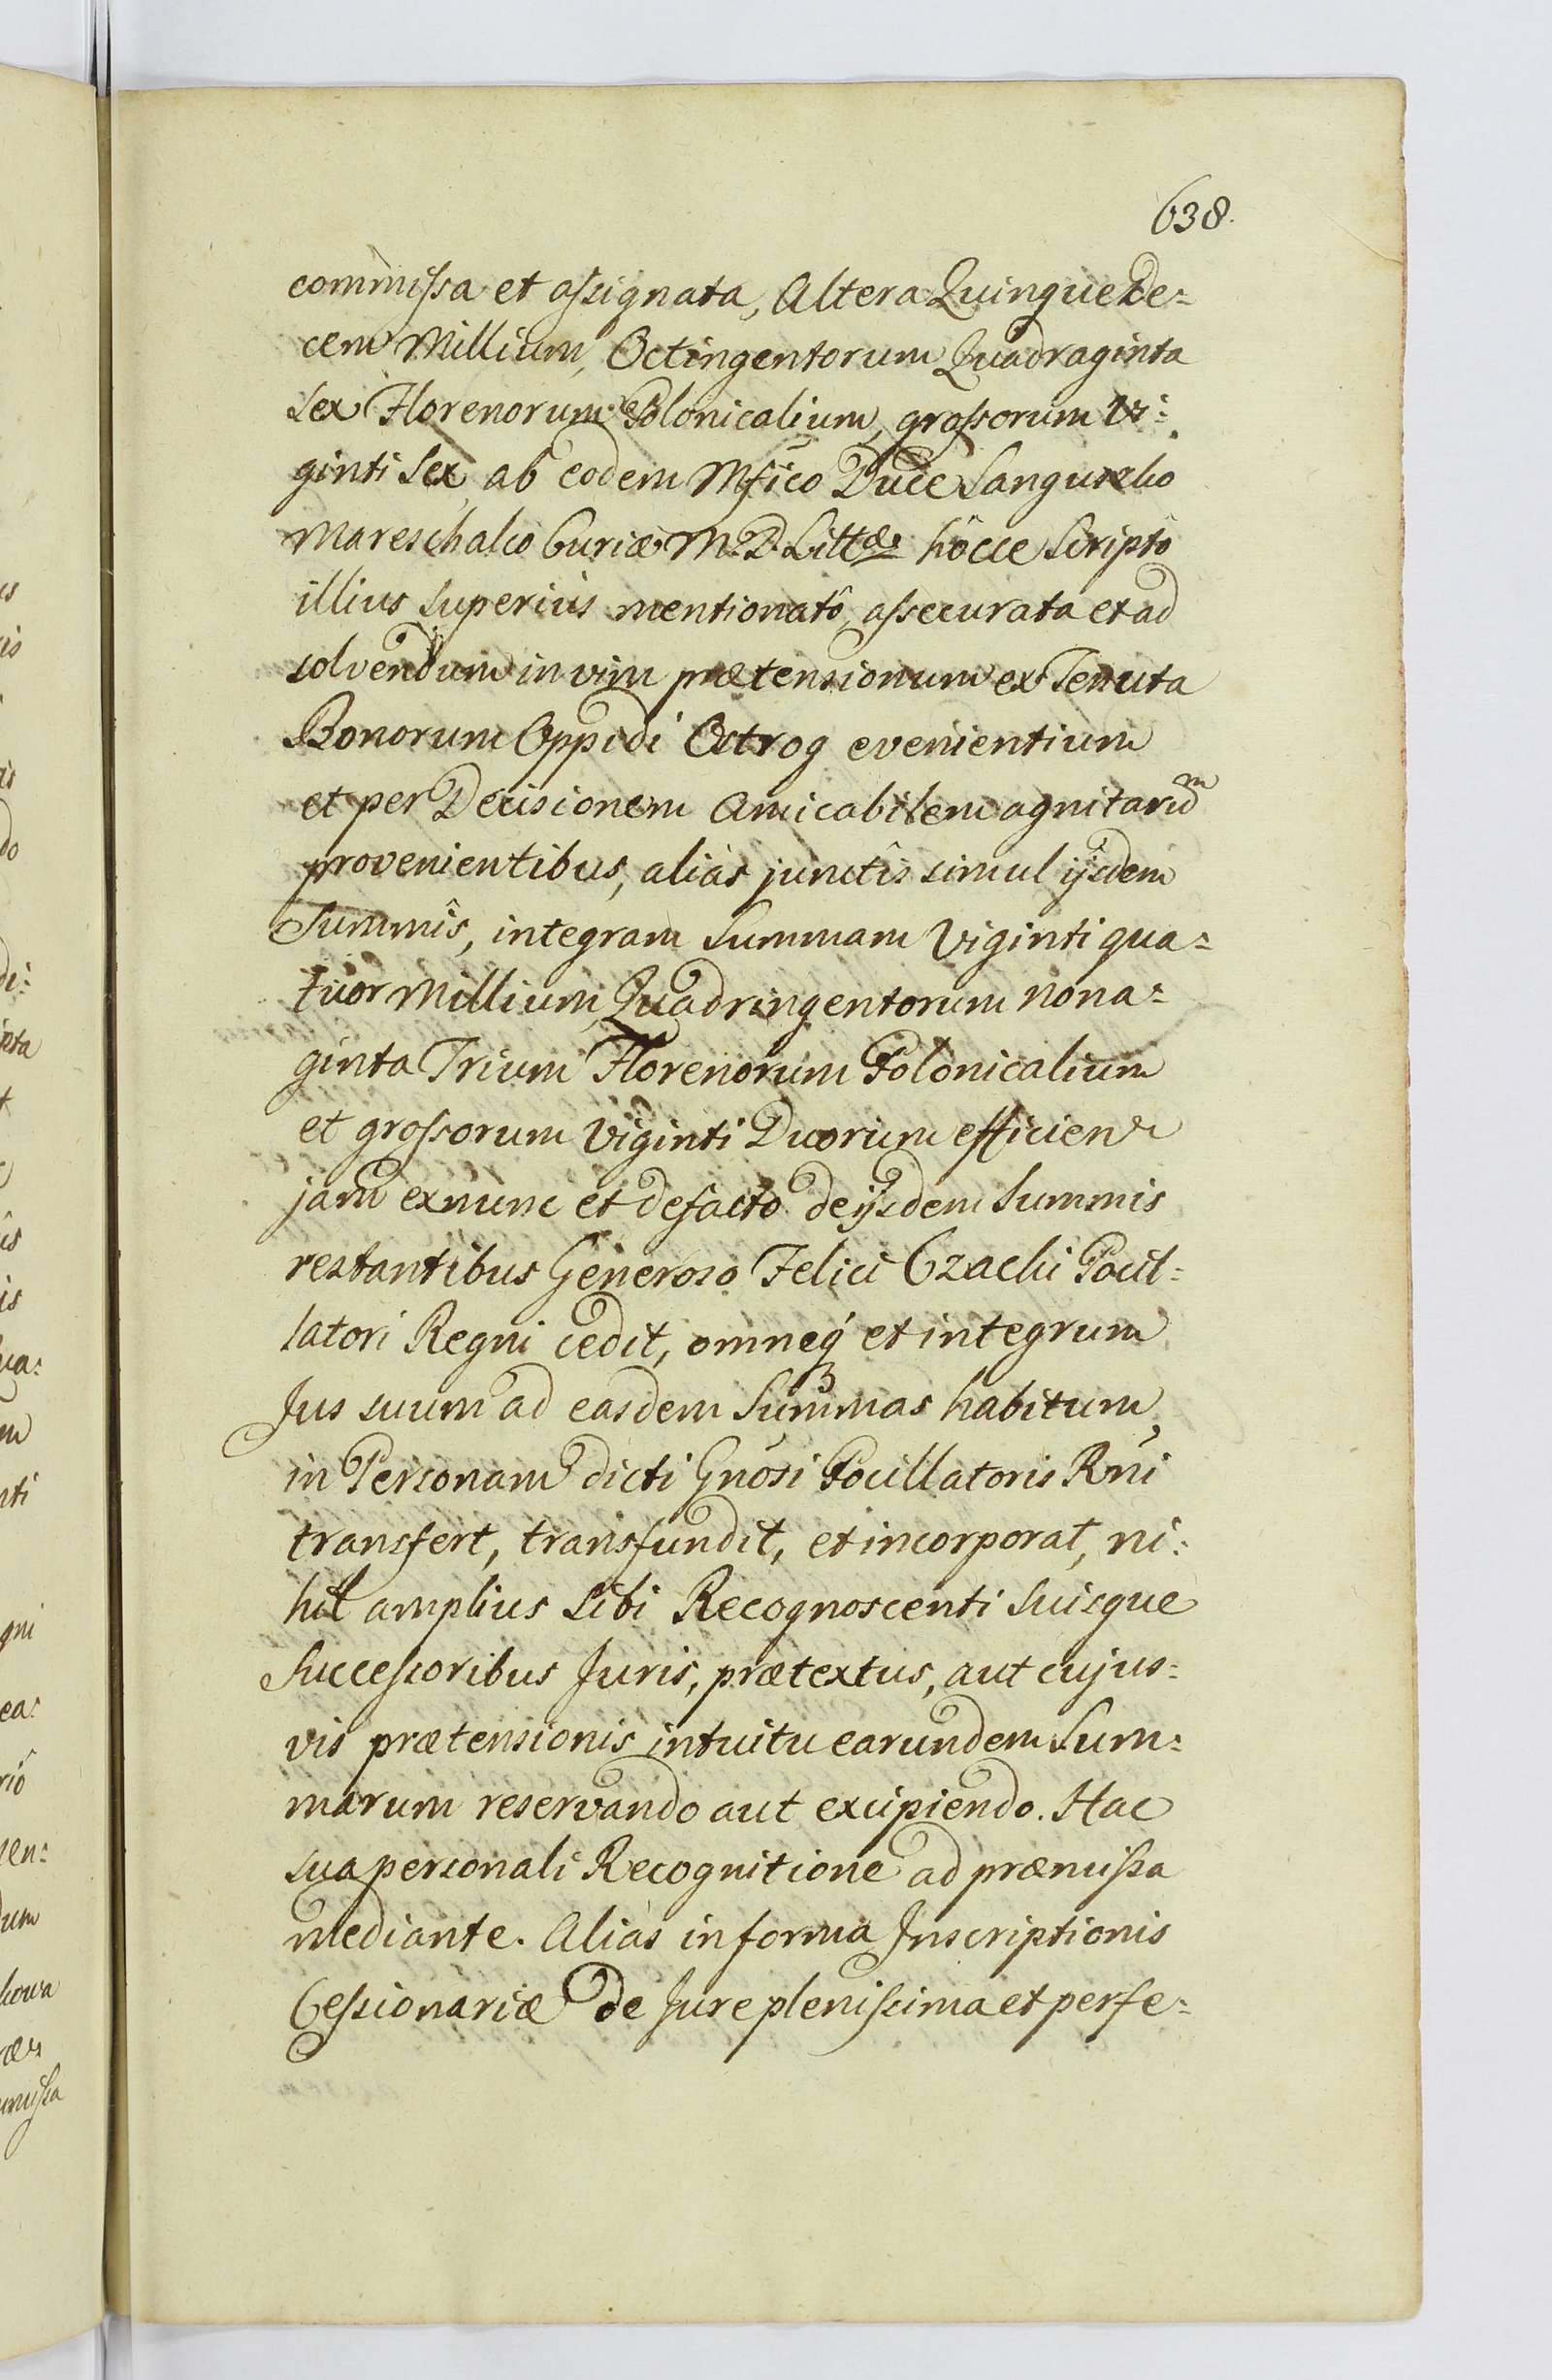 638.
commissa et assignata, Altera Quinque De=
cem Millium, Octingentorum Quadraginta
Sex Florenorum Polonicalium, grossorum Vi=
ginti Sex, ab eodem Mfico Duce Sanguszko
Mareschalco Curiæ M. D. Littæ hôcce Scriptô
illius superius mentionatô, assecurata et ad
solvendum in vim prætensionum ex Tenuta
Bonorum Oppidi Ostrog evenientium
et per Decisionem Amicabilem agnitarum
provenientibus, aliàs junctîs simul ijsdem
Summîs, integram Summam Viginti qua=
tuor Millium, Quadringentorum Nona=
ginta Trium Florenorum Polonicalium
et grossorum Viginti Duorum efficien
jam exnunc et defacto de ijsdem Summis
restantibus Generoso Felici Czacki Pocil=
latori Regni cedit, omneq3 et integrum
Jus suum ad easdem Summas habitum,
in Personam dicti Gnosi Pocillatoris Rni
transfert, transfundit, et incorporat, ni=
hil amplius Sibi Recognoscenti Suisque
Successoribus Juris, prætextus, aut cujus=
vis prætensionis intuitu earundem Sum=
marum reservando aut excipiendo. Hac
sua personali Recognitione ad præmissa
mediante. Aliàs in forma Inscriptionis
Cessionariæ de Jure plenissima et perfe=